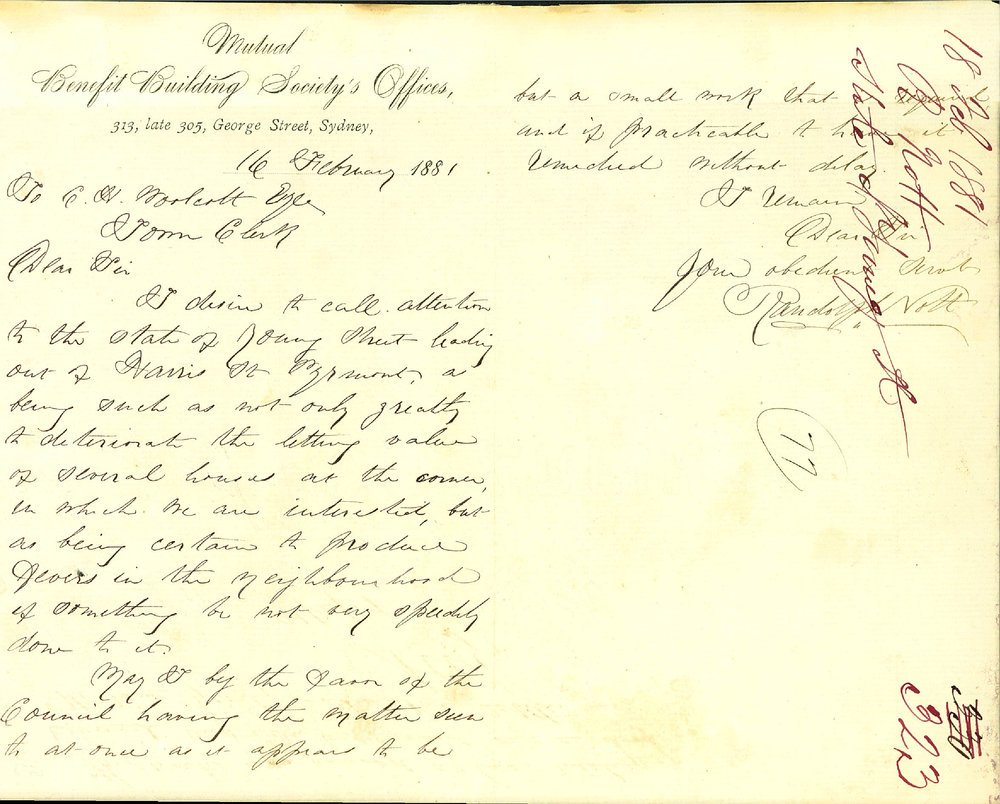 Mutual
Benefit Building Society's Offices,
313, late 305, George Street, Sydney,
16 February 1881
To C. H. Woolcott Esqe
Town Clerk
Dear Sir
I desire to call attention
to the state of Young Street leading
out of Harris St Pyrmont, as
being such as not only greatly
to deteriorate the letting value
of several houses at the corner,
in which we are interested, but
as being certain to produce
fevers in the neighbourhood
if something be not very speedily
done to it.
May I by the favor of the
Council having the matter seen
to at once as it appears to be
but a small work that is required
and if practicable to have it
remedied without delay.
I remain
Dear Sir
Your obedient Servt
Randolph Nott
18 Feb 1881
R Nott
State of Young St
77
323